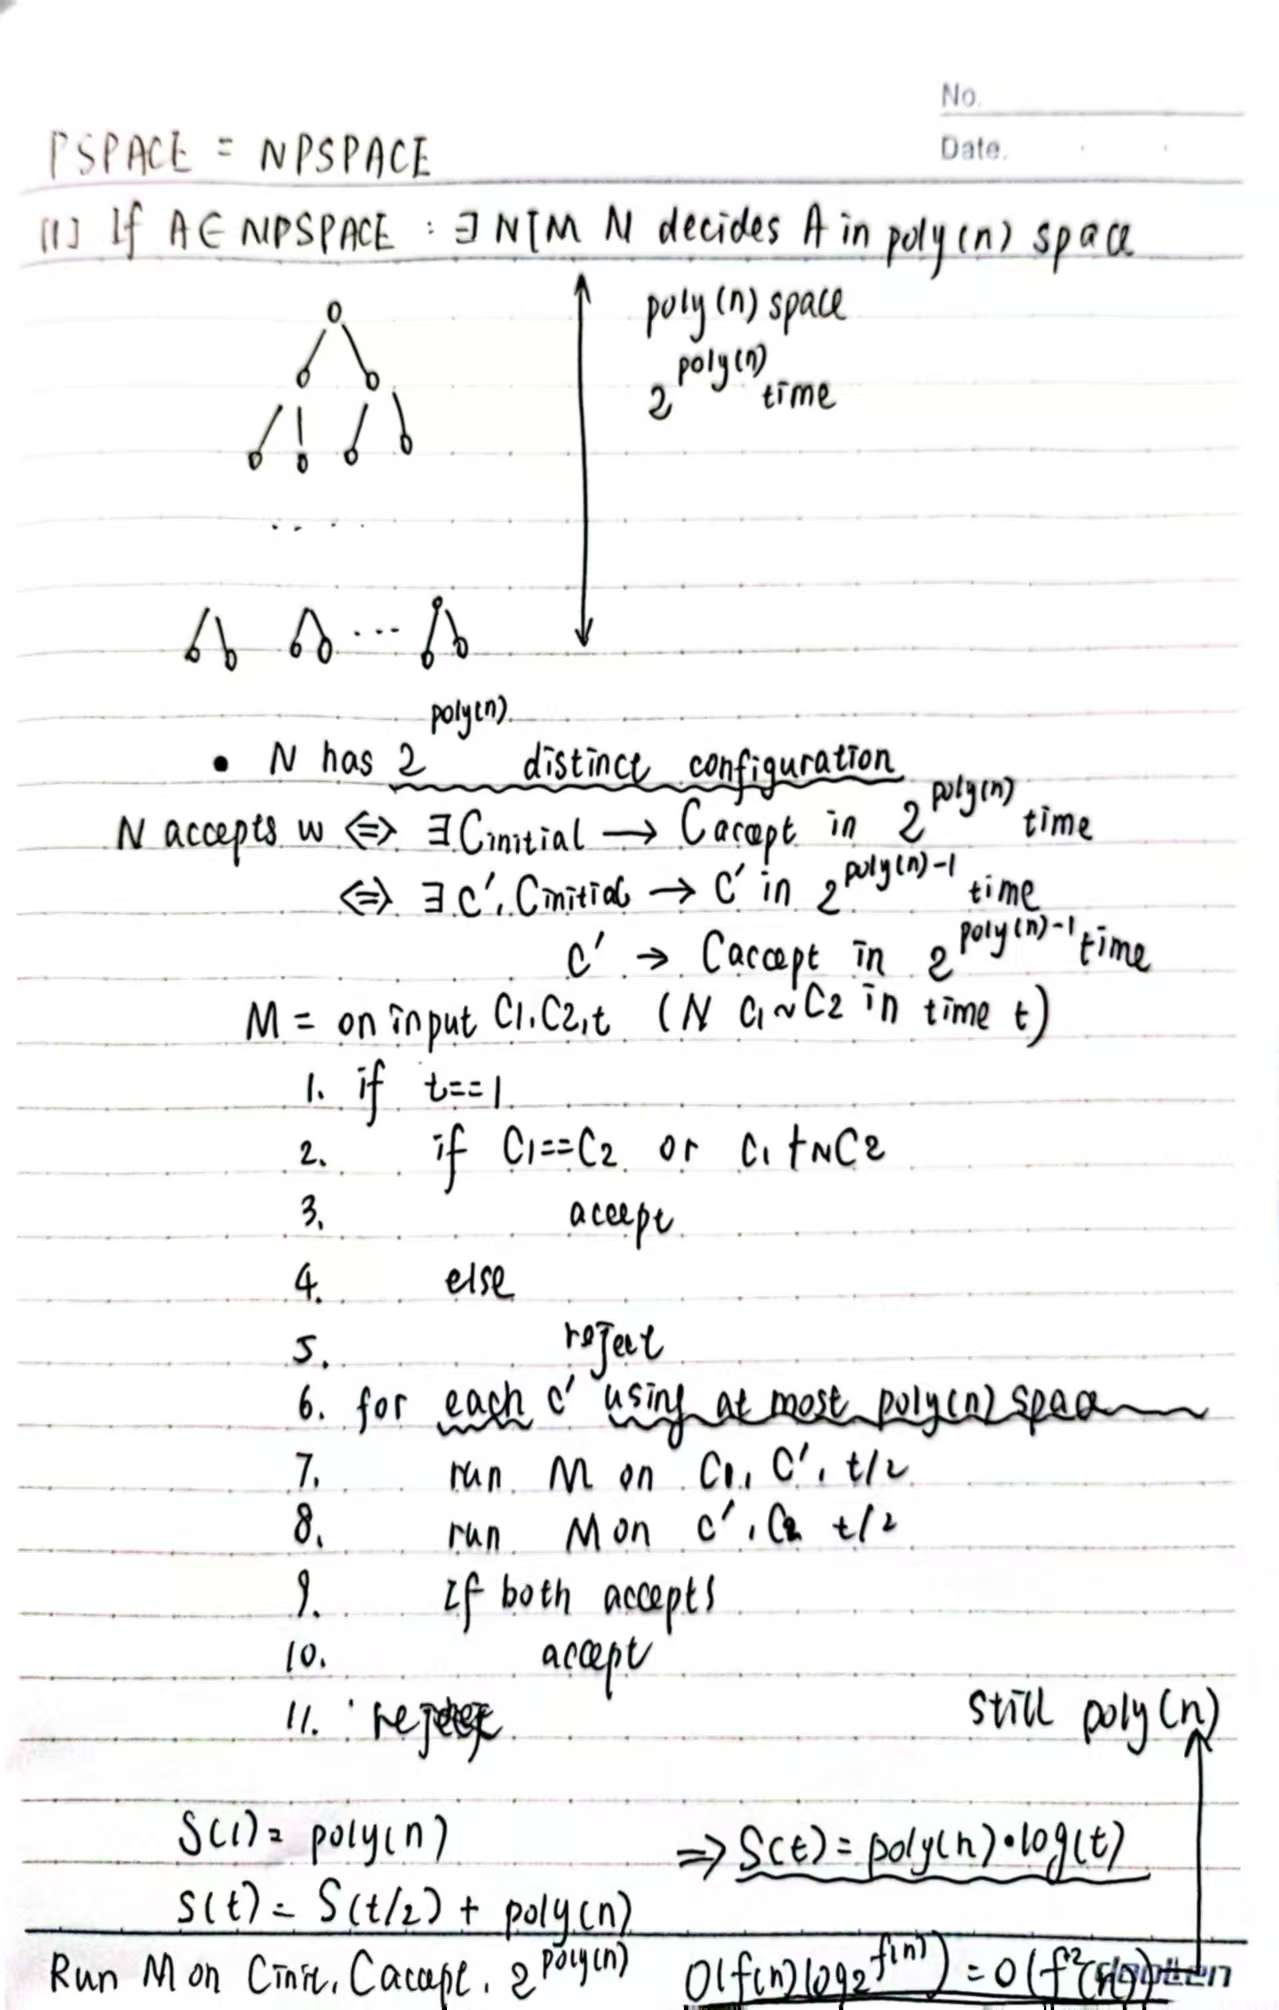 No.
PSPACE = NPSPACE
Date.
[1] If A ∈ NPSPACE : ∃ NTM N decides A in poly(n) space
poly(n) space
2^poly(n) time
. . . . .
...
• N has 2^poly(n) distinct configuration
N accepts w ⇔ ∃ Cinitial → Caccept in 2^poly(n) time
⇔ ∃ C', Cinitial → C' in 2^poly(n)-1 time
C' → Caccept in 2^poly(n)-1 time
M = on input C1, C2, t (N C1 ~ C2 in time t)
1. if t==1
2. if C1==C2 or C1 ⊢N C2
3. accept
4. else
5. reject
6. for each C' using at most poly(n) space
7. run M on C1, C', t/2
8. run M on C', C2 t/2
9. If both accepts
10. accept
11. reject
still poly(n)
S(1) = poly(n) ⇒ S(t) = poly(n)·log(t)
S(t) = S(t/2) + poly(n)
Run M on Cinit, Caccept, 2^poly(n) O(f(n) log2^f(n)) = O(f²(n))